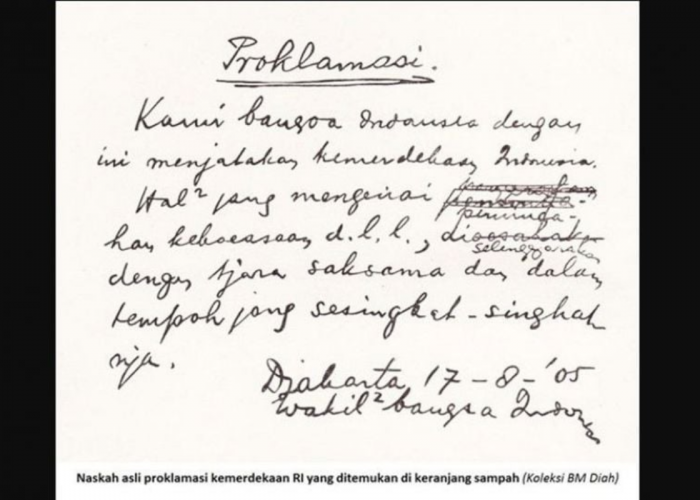 Proklamasi.
Kami bangsa Indonesia dengan
ini menjatakan kemerdekaan Indonesia.
Hal² jang mengenai
peminda-
han keboeasaan d.l.l., dioesahakan
selenggarakan
dengan tjara saksama dan dalam
tempoh jang sesingkat-singkat
nja.
Djakarta, 17-8-'05
Wakil² bangsa Indonesia
Naskah asli proklamasi kemerdekaan RI yang ditemukan di keranjang sampah (Koleksi BM Diah)